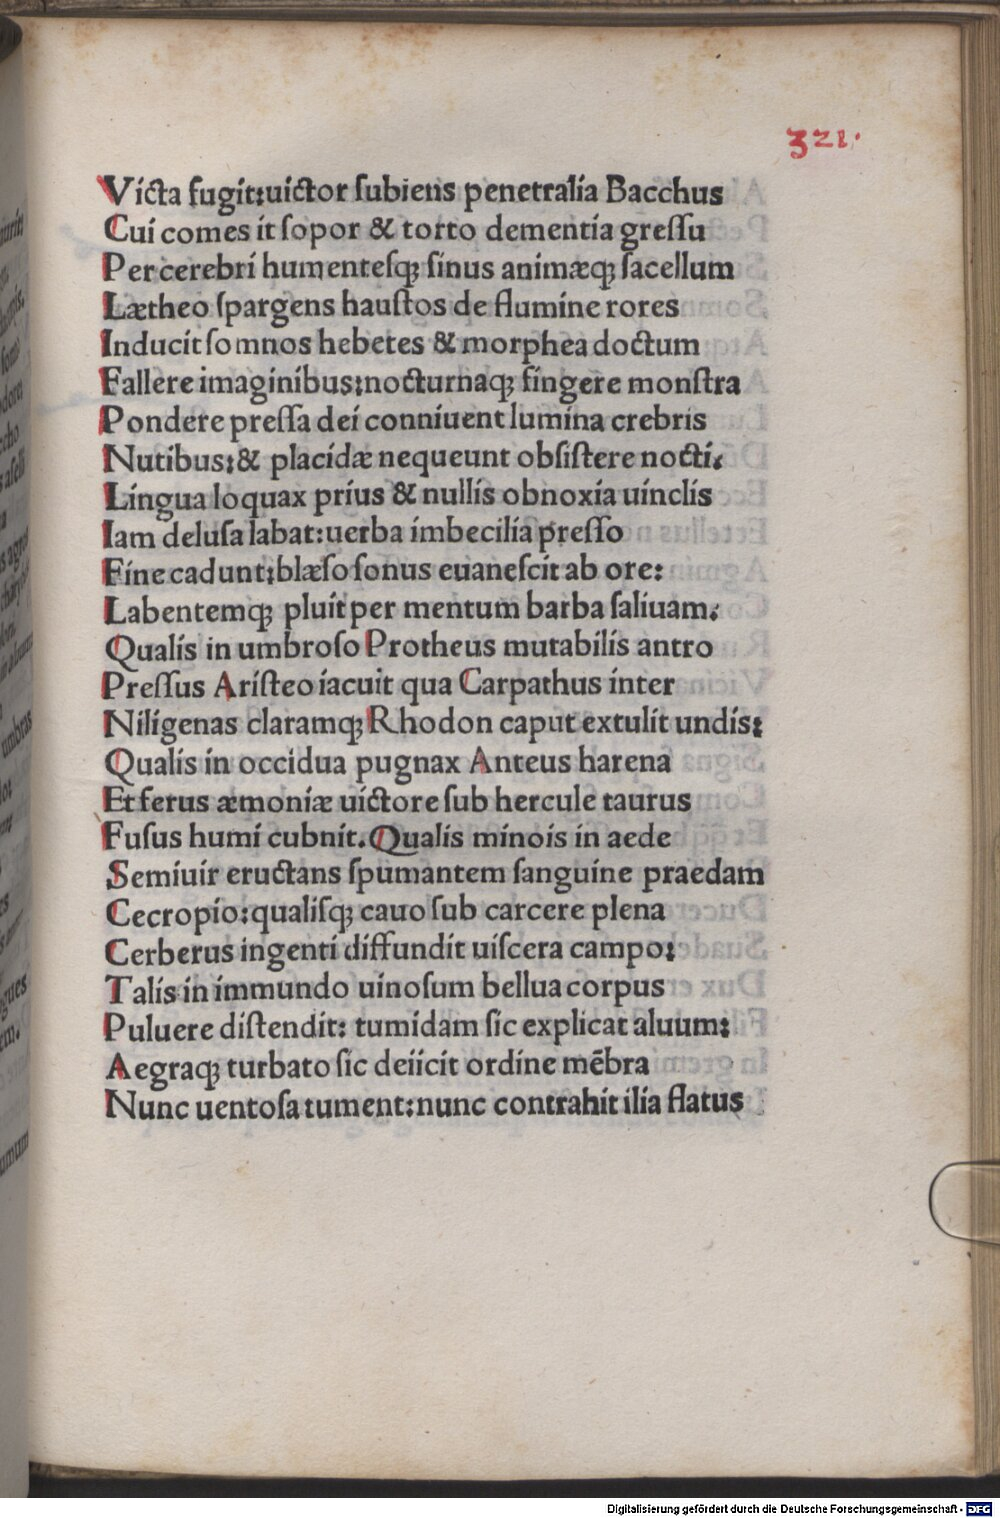 321.
Victa fugit:uictor ſubiens penetralia Bacchus
Cui comes it ſopor & torto dementia greſſu
Per cerebri humenteſq; ſinus animæq; ſacellum
Lætheo ſpargens hauſtos de flumine rores
Inducit ſomnos hebetes & morphea doctum
Fallere imaginibus:nocturnaq; fingere monſtra
Pondere preſſa dei conniuent lumina crebris
Nutibus:& placidæ nequeunt obſiſtere nocti.
Lingua loquax prius & nullis obnoxia uinclis
Iam deluſa labat:uerba imbecilia preſſo
Fine cadunt:blæſo ſonus euaneſcit ab ore:
Labentemq; pluit per mentum barba ſaliuam.
Qualis in umbroſo Protheus mutabilis antro
Preſſus Ariſteo iacuit qua Carpathus inter
Niligenas claramq; Rhodon caput extulit undis:
Qualis in occidua pugnax Anteus harena
Et ferus æmoniæ uictore ſub hercule taurus
Fuſus humi cubnit. Qualis minois in aede
Semiuir eructans ſpumantem ſanguine praedam
Cecropio:qualiſq; cauo ſub carcere plena
Cerberus ingenti diffundit uiſcera campo:
Talis in immundo uinoſum bellua corpus
Puluere diſtendit: tumidam ſic explicat aluum:
Aegraq; turbato ſic deiicit ordine mēbra
Nunc uentoſa tument:nunc contrahit ilia flatus
Digitalisierung gefördert durch die Deutsche Forschungsgemeinschaft - DFG